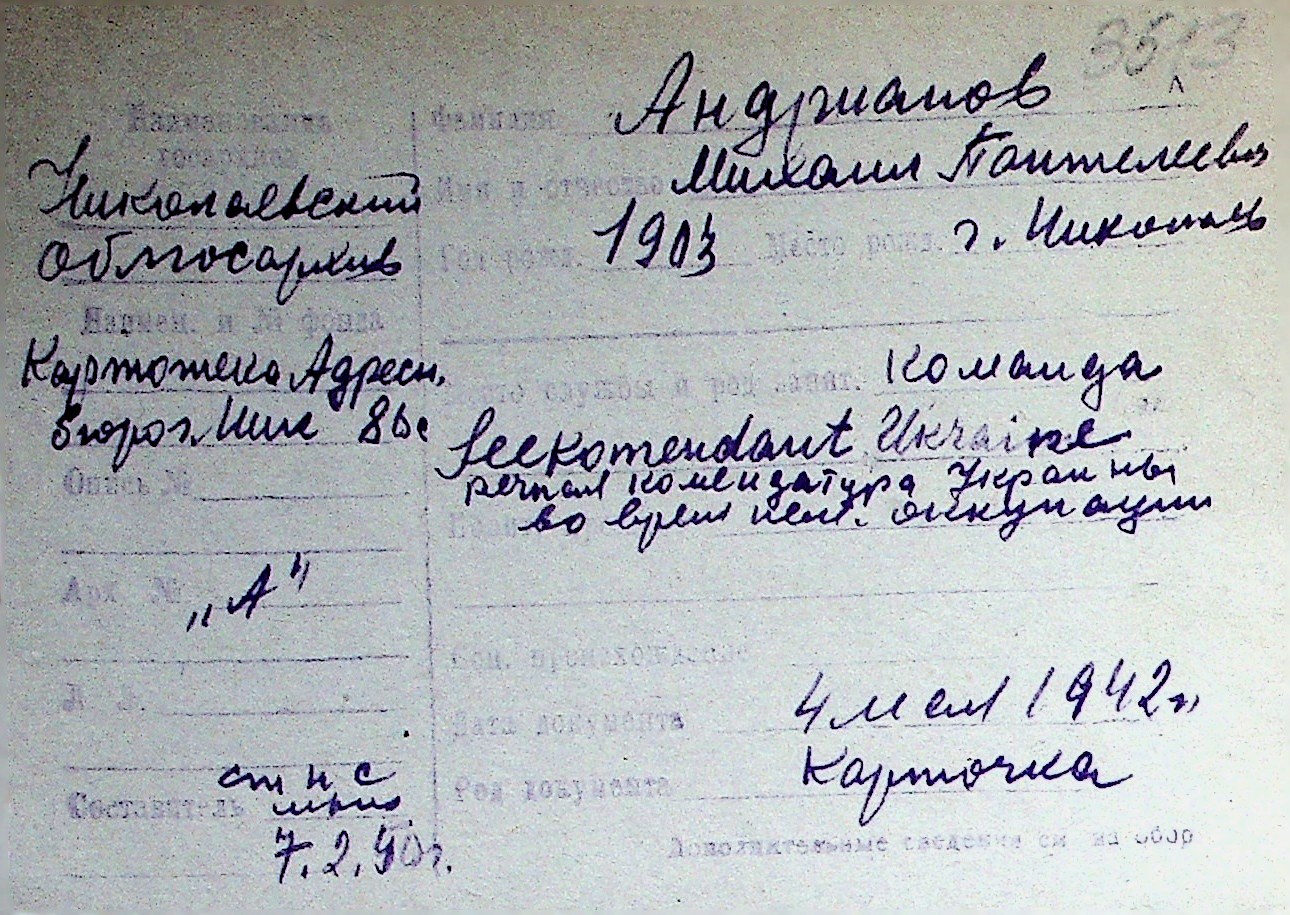 3513
Наименование
госархива
Николаевский
Облгосархив
Наимен. и № фонда
Картотека Адресн.
бюро г. Ник
Опись №
Арх №
„А"
Л Л.
Составитель ст н с
7.2.90г.
Фамилия Андрианов
Имя и отчество Михаил Пантелеевич
Год рожд. 1903 Место рожд. г. Николаев
Место службы и род занят. Команда
Seekomendant Ukraine
речная комендатура Украины
во время нем. оккупации
Соц. происхождение
Дата документа 4 мая 1942г.
Род документа Карточка
Дополнительные сведения см на обор